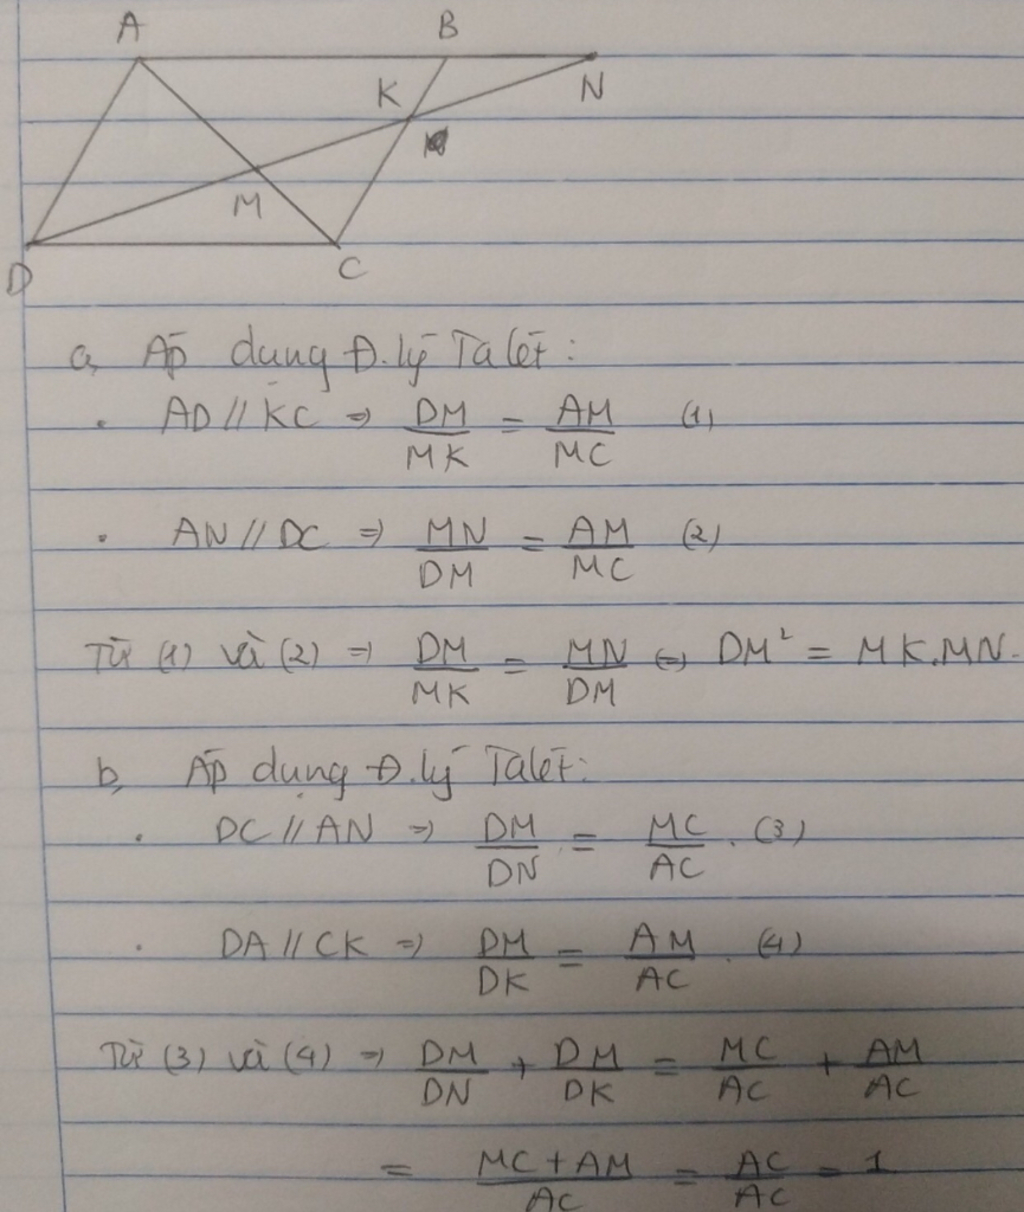 A B
K N
M
D C
a, Áp dụng Đ.lý Talét:
. AD // KC => DM/MK = AM/MC (1)
. AN // DC => MN/DM = AM/MC (2)
Từ (1) và (2) => DM/MK = MN/DM <=> DM² = MK.MN.
b, Áp dụng Đ.lý Talét:
. DC // AN => DM/DN = MC/AC . (3)
. DA // CK => DM/DK = AM/AC . (4)
Từ (3) và (4) => DM/DN + DM/DK = MC/AC + AM/AC
= MC+AM/AC = AC/AC = 1